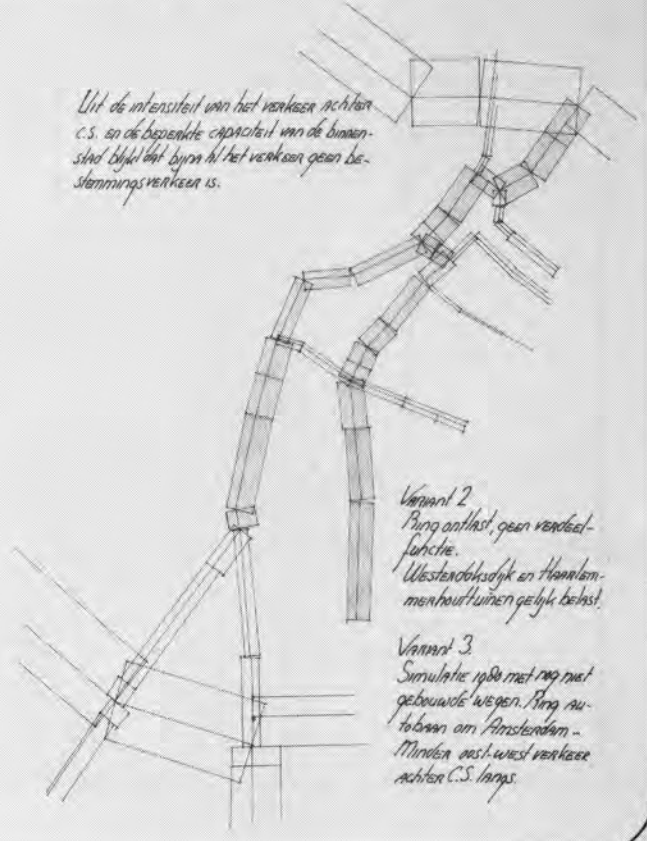 Uit de intensiteit van het verkeer achter
C.S. en de beperkte capaciteit van de binnen-
stad blijkt dat bijna al het verkeer geen be-
stemmingsverkeer is.
Variant 2
Ring ontlast, geen verdeel-
functie.
Westerdoksdijk en Haarlem-
merhouttuinen gelijk belast.
Variant 3.
Simulatie 1980 met nog niet
gebouwde wegen. Ring au-
tobaan om Amsterdam -
Minder oost-west verkeer
achter C.S. langs.